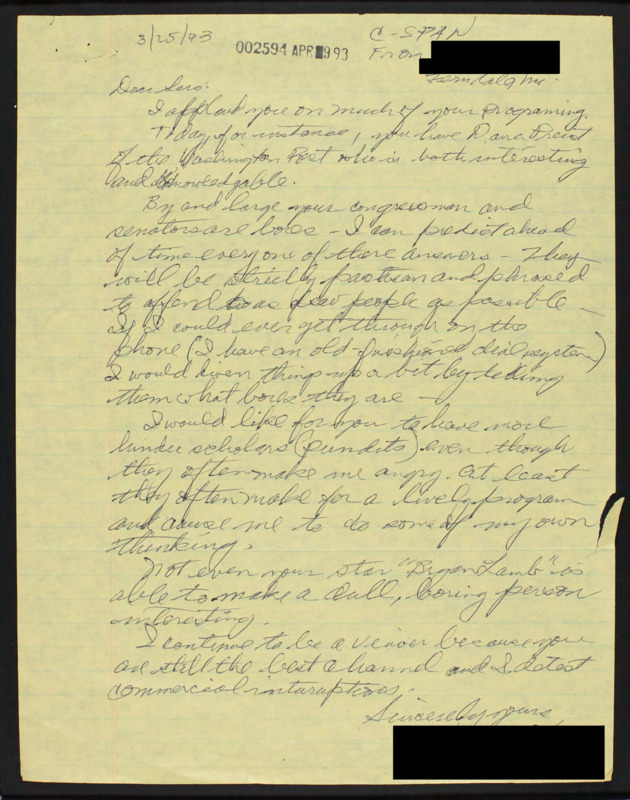 3/25/93
002594 APR 993
C-SPAN
From
Ferndale Mi.
Dear Sers:
I applaud you on much of your programing.
Today, for instance, you have Dana Priest
of the Washington Post who is both interesting
and knowledgable.
By and large your congressmen and
senators are bores - I can predict ahead
of time everyone of there answers - They
will be strictly partisan and phrased
to offend as few people as possible -
if I could ever get through on the
phone (I have an old-fashioned dial system)
I would liven things up a bit by telling
them what bores they are -
I would like for you to have more
scholars (pundits) even though
they often make me angry. At least
they often make for a lively program
and cause me to do some of my own
thinking.
Not even your star "Bryan Lamb" is
able to make a dull, boring person
interesting.
I continue to be a viewer because you
are still the best channel and I detest
commercial inturuptions.
Sincerely yours,